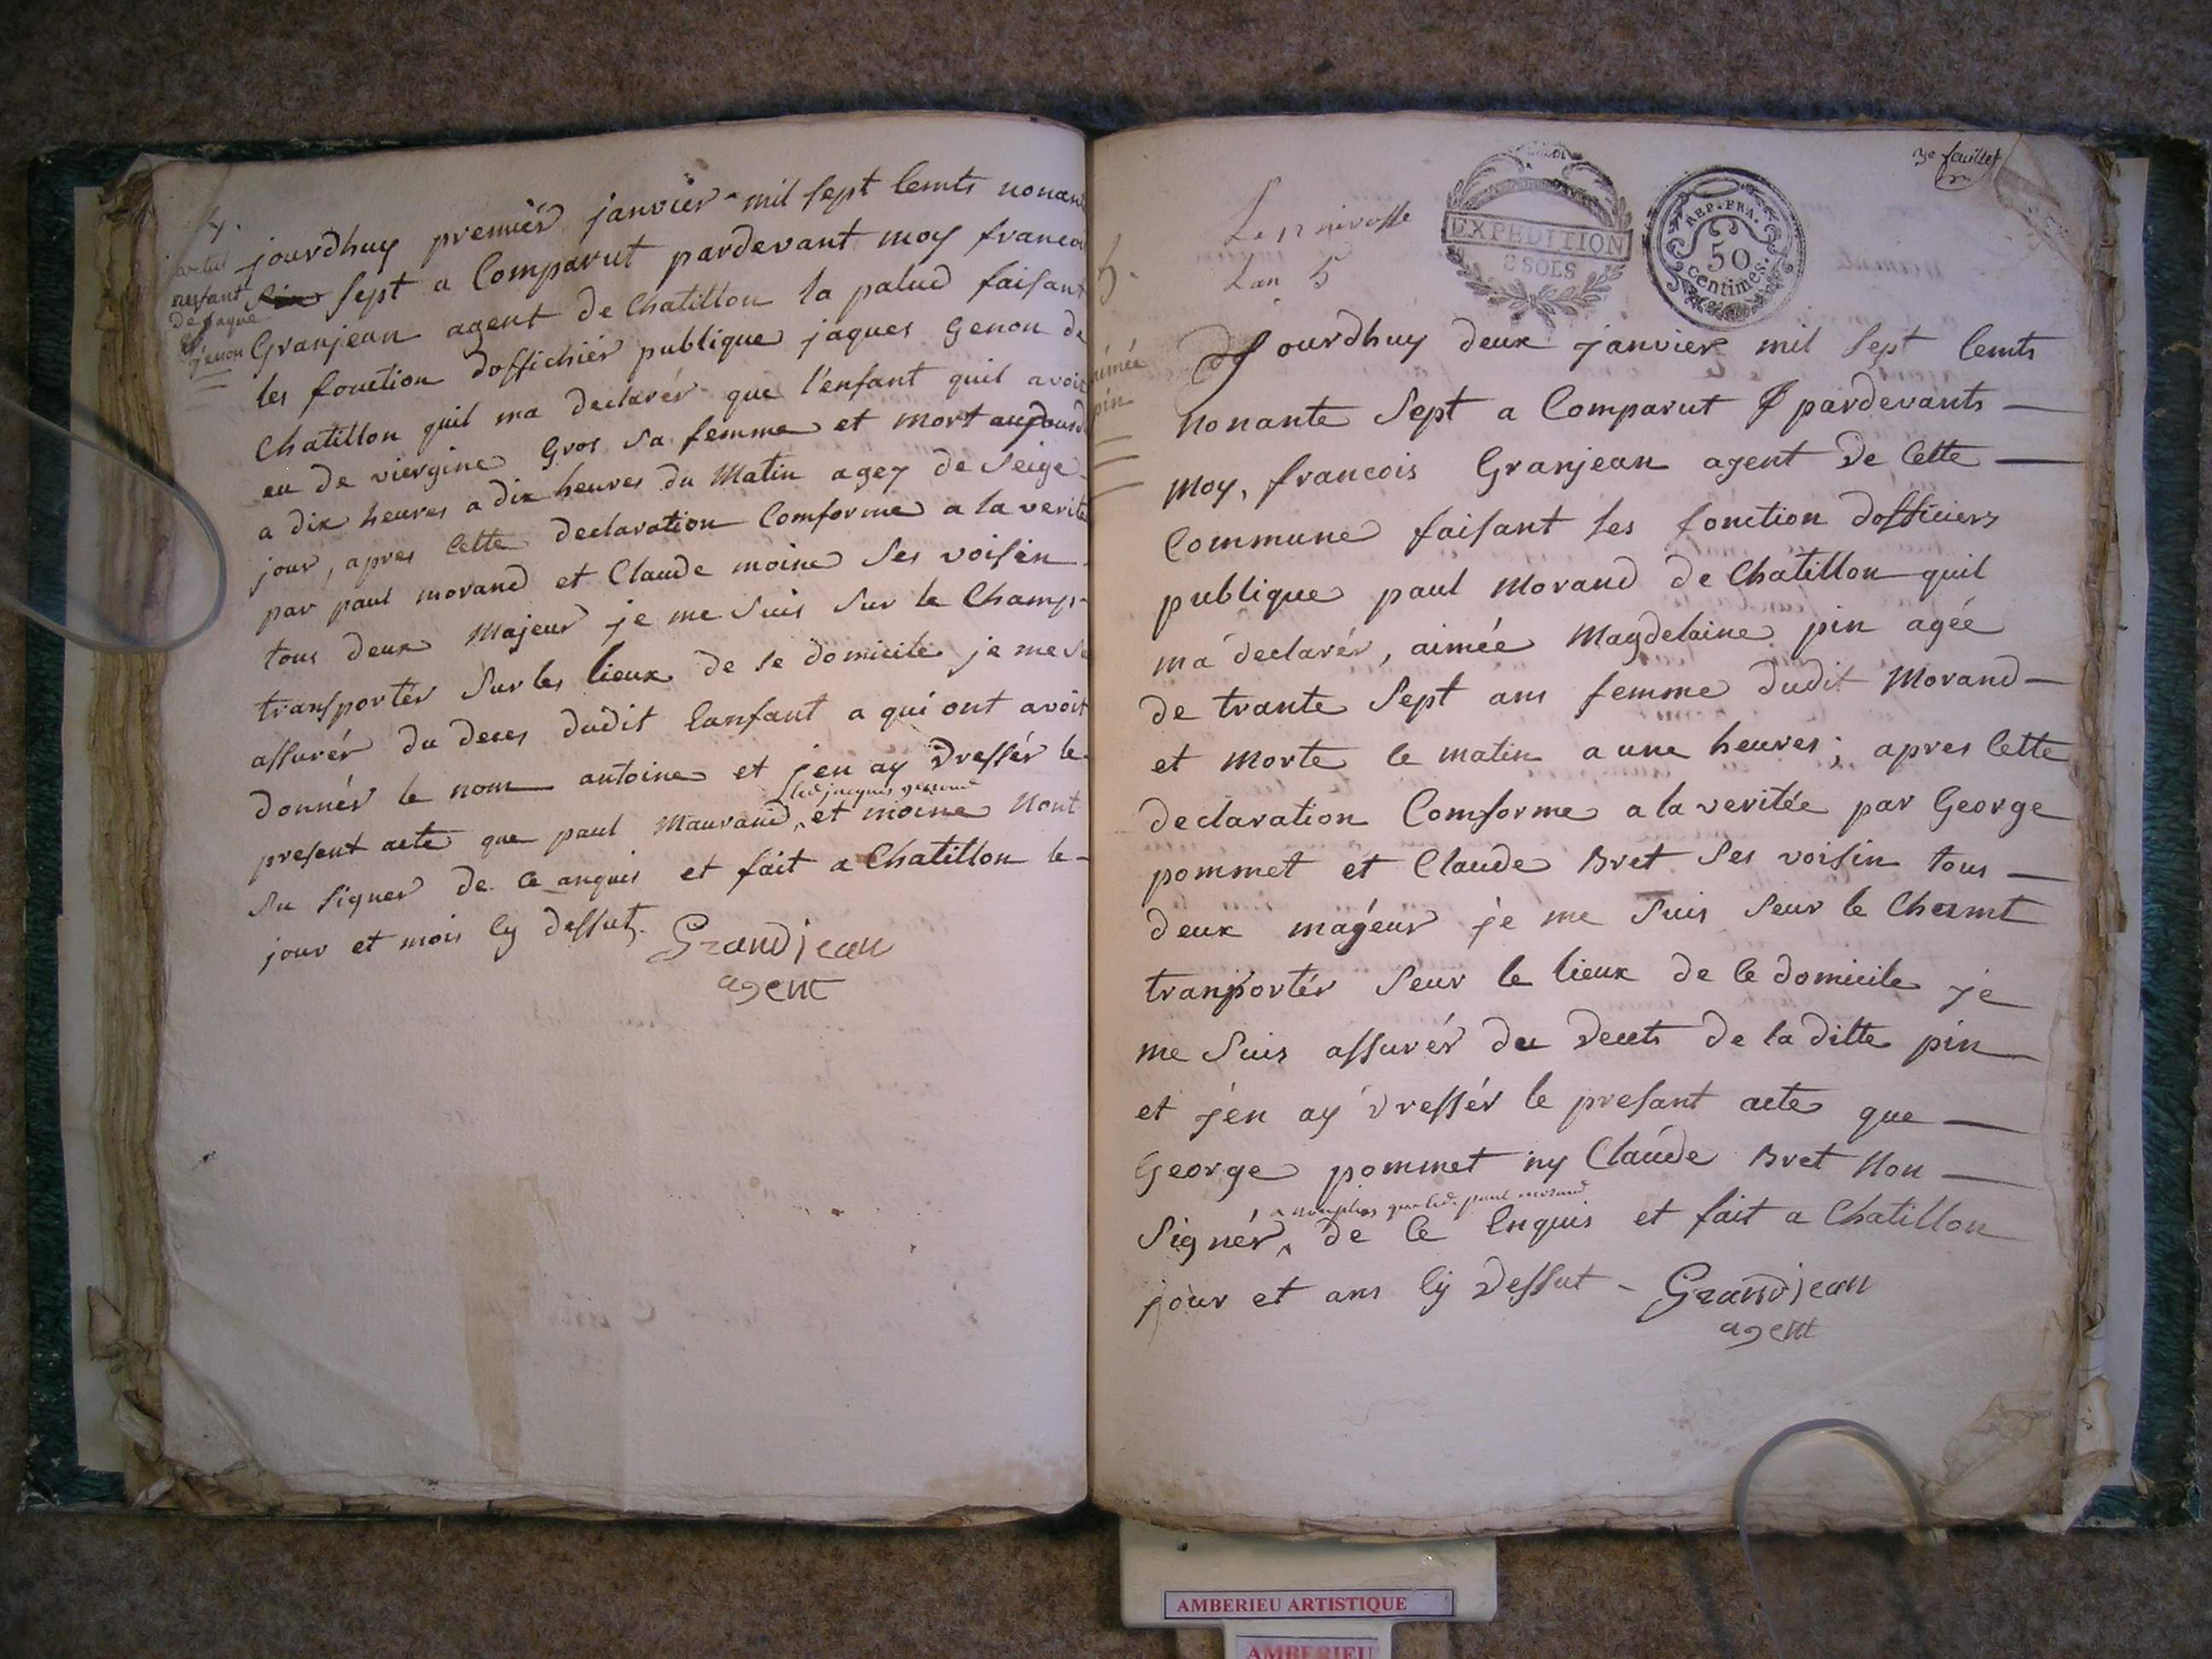 4.
enfant
de Jaque
genon
jourdhuy premiér janvier mil sept cents nonan
sept a Comparut pardevant moy francoi
Granjean agent de Chatillon la palud faisant
les fonction doffichiér publique jaques Genon de
Chatillon quil ma declarér que l'enfant quil avoit
eu de viergine Gros Sa femme et mort aujourd
a dix heures a dix heures du Matin agez de Seige
jour, apres Cette declaration Comforme a la verité
par paul morand et Claude moine Ses voisin
tous deux Majeur je me Suis Sur le Champ
transportér Sur les lieux de Se domicile je me S
assurér du deces dudit Lanfant a qui ont avoit
donnér le nom antoine et jen ay Dressér le
led jacques genond
present acte que paul Mauraud, et moine Nont
Su Signer de Ce anquis et fait a Chatillon le
jour et mois Cy dessut.
Grandjean
agent
3e feuillet
Le 12 nivosse
Lan 5
EXPEDITION
8 SOLS
REP. FRA.
50
centimes.
5.
aimée
pin
Jourdhuy deux janvier mil Sept Cents
nonante Sept a Comparut pardevants
moy, francois Granjean agent de Cette
Commune faisant les fonction dofficiers
publique paul Morand de Chatillon quil
ma declarér, aimée Magdelaine pin agée
de trante Sept ans femme dudit Morand
et Morte le matin a une heures; apres Cette
declaration Comforme a la veritée par George
pommet et Claude Bret Ses voisin tous
deux majeur je me Suis Seur le Chamt
tranportér Seur le lieux de Ce domicile je
me Suis assurér du decets de la ditte pin
et jén ay Dressér le presant acte que
George pommet ny Claude Bret Non
nonplus que led. paul morand
Signér, de Ce Enquis et fait a Chatillon
jour et ans Cy Dessut - Grandjean
agent
AMBERIEU ARTISTIQUE
AMBERIEU